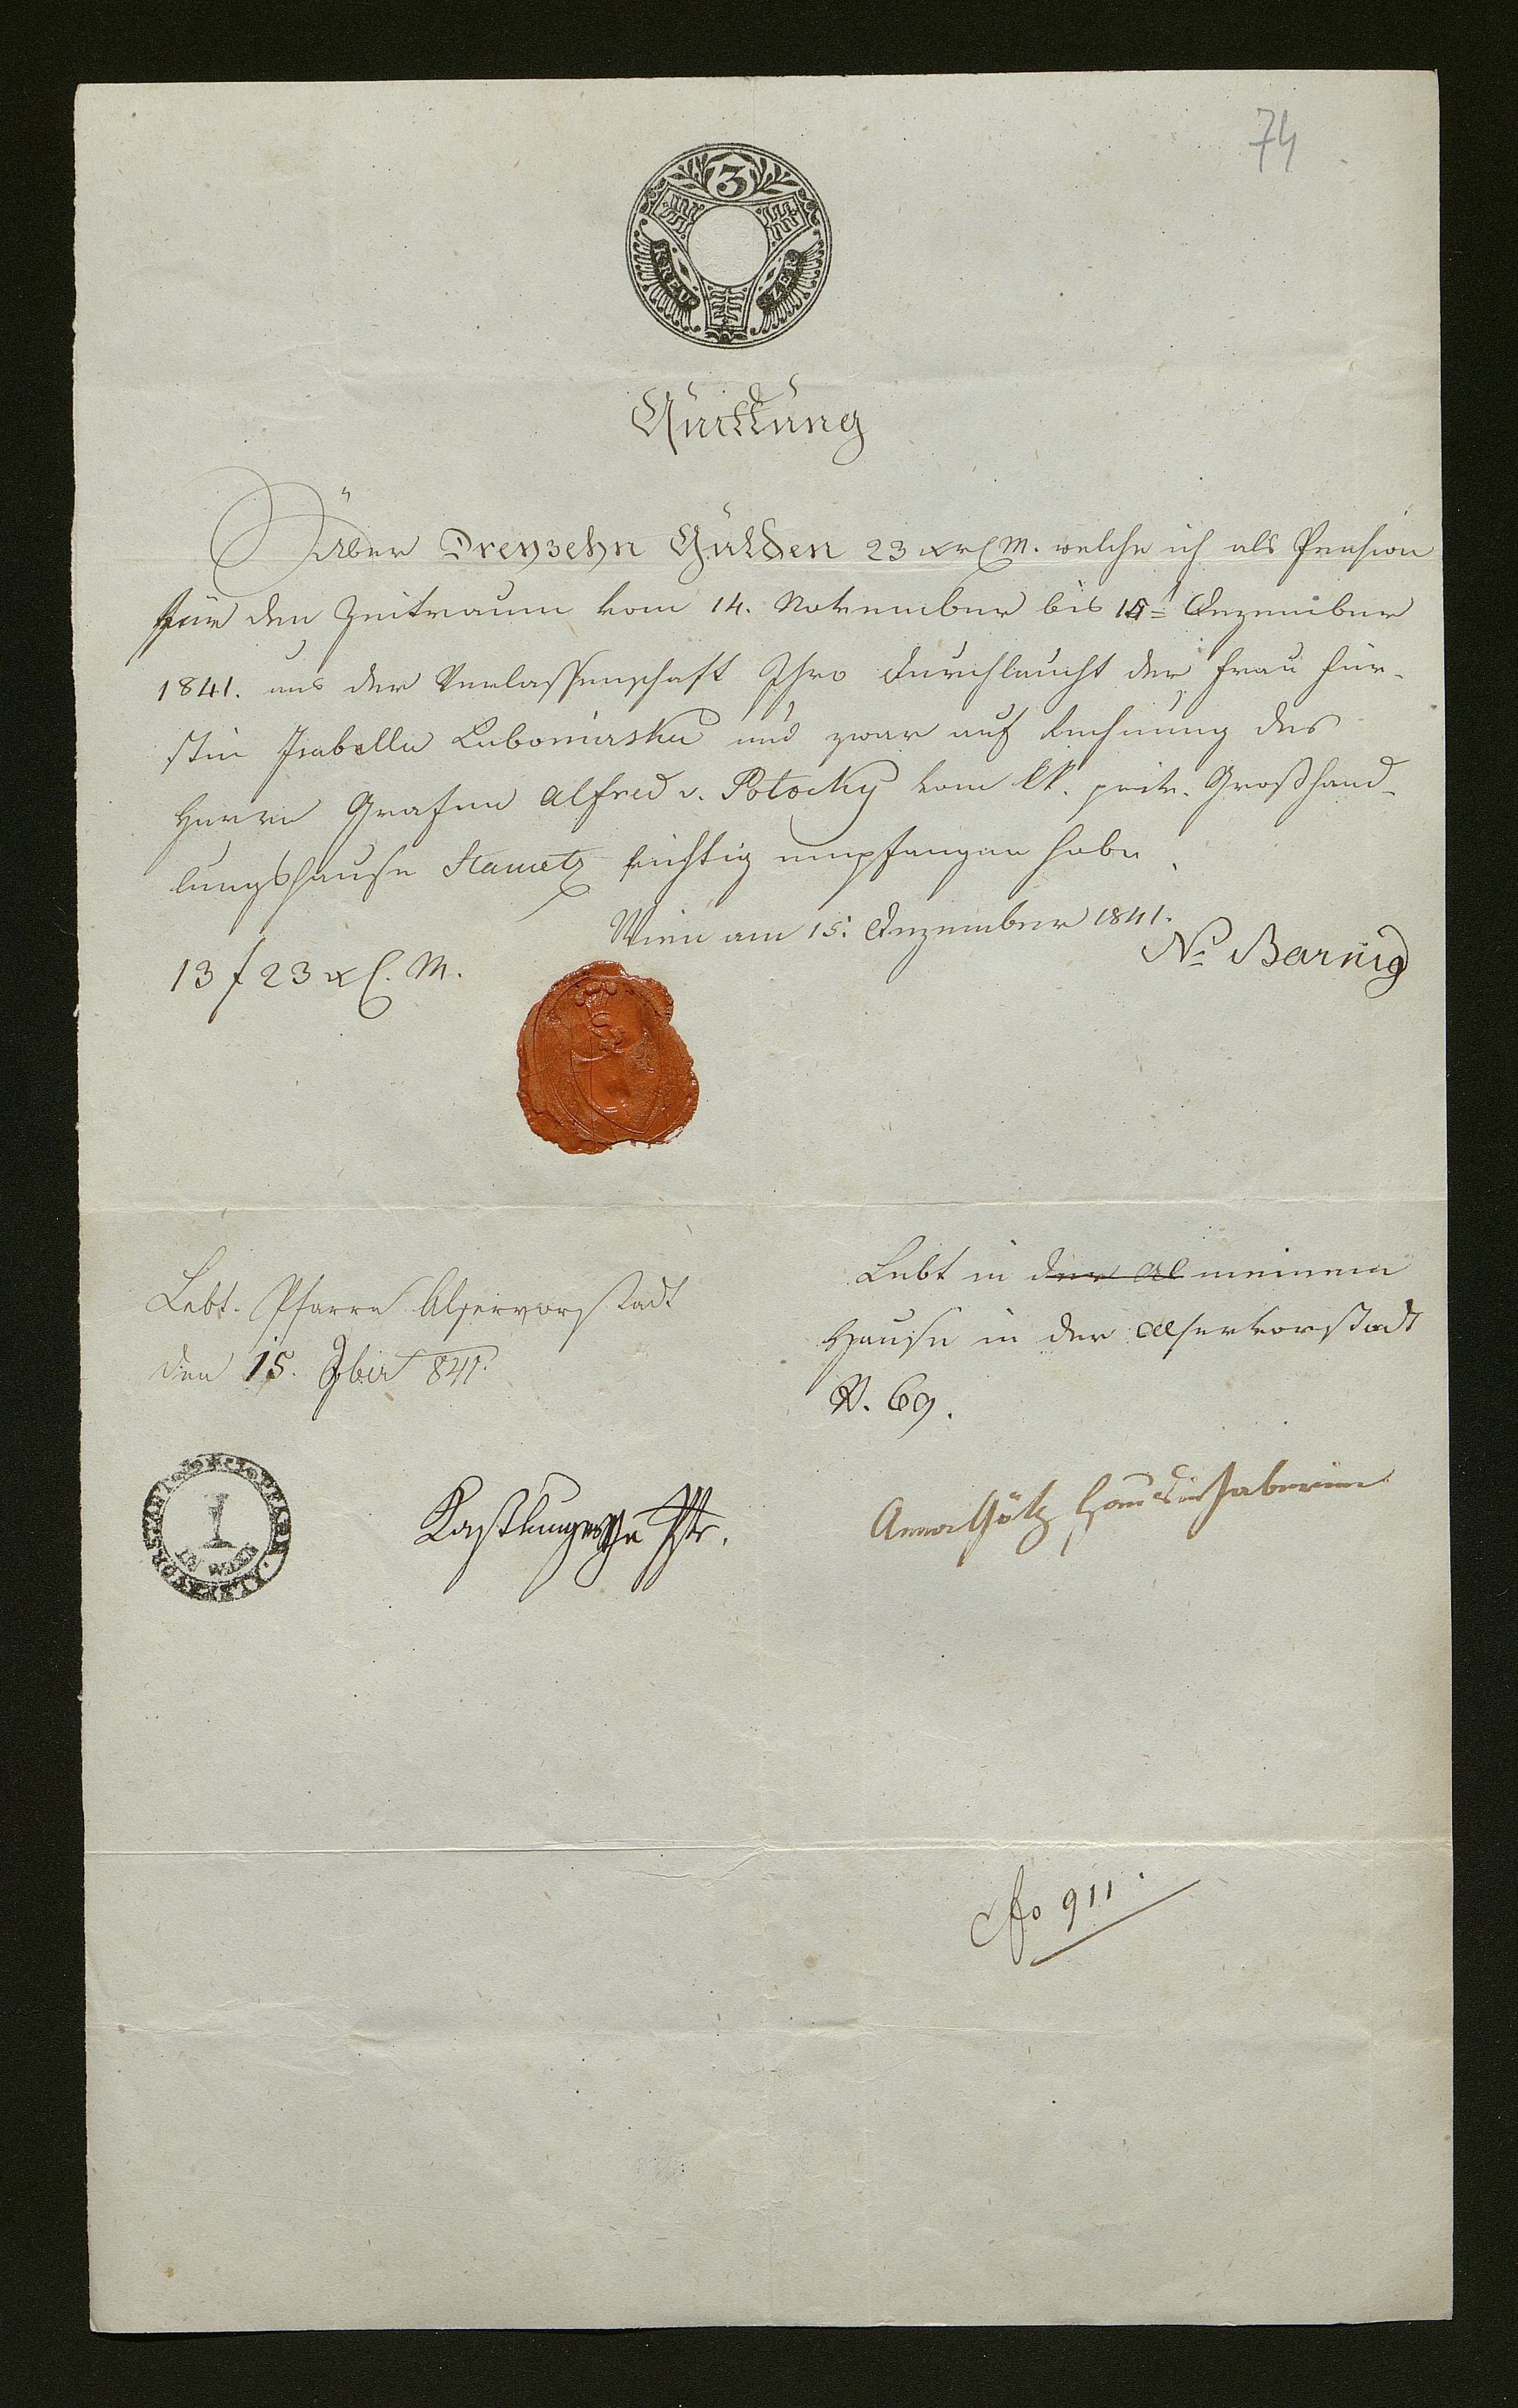 74
3
KREU ZER
Quittung
Über Dreyzehn Gulden 23 xr C.M. welche ich als Pension
für den Zeitraum vom 14. November bis 15t Dezember
1841. aus der Verlassenschaft Ihro Durchlaucht der Frau Für-
stin Isabella Lubomirska und zwar auf Rechnung des
Herrn Grafen Alfred v. Potocky vom kk. priv. Großhand-
lungshause Stametz richtig empfangen habe.
Wien am 15. Dezember 1841.
13 f 23 x C. M.
Barnig
Lebt. Pfarre Alservorstadt
den 15. Xbr 841.
Lebt in der Al meinem
Hause in der Alservorstadt
N. 69.
IN WIEN
Pfr.
Anna Götz Hausinhaberinn
fo 911.